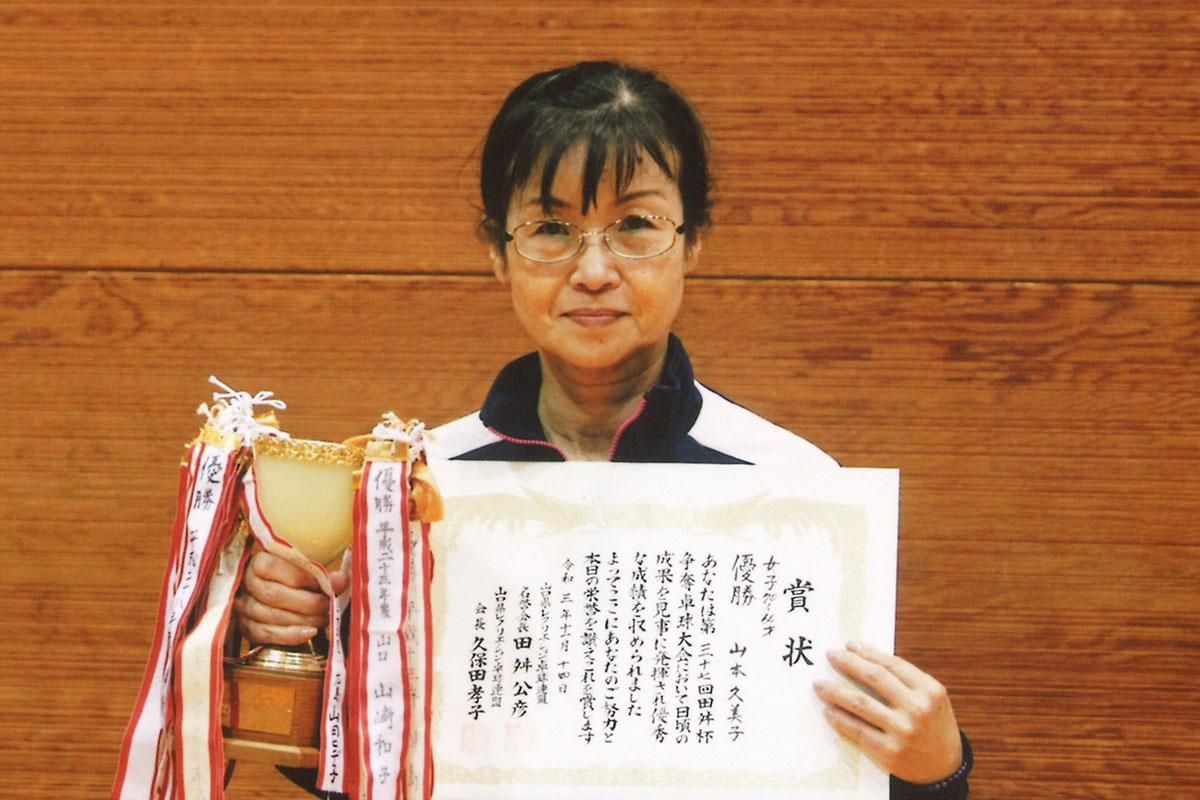 賞状
優勝
山本久美子
あなたは第三十七回田舛杯
争奪卓球大会において日頃の
成果を見事に発揮され優秀
な成績を収められました
よってここにあなたのご努力と
本日の栄誉を讃えこれを賞します
令和三年十一月十四日
山口県レクリエーション卓球連盟
名誉会長 田舛公彦
山口県レクリエーション卓球連盟
会長 久保田孝子
優勝
優勝 平成二十三年度 山口 山崎和子
山田ヒデ子